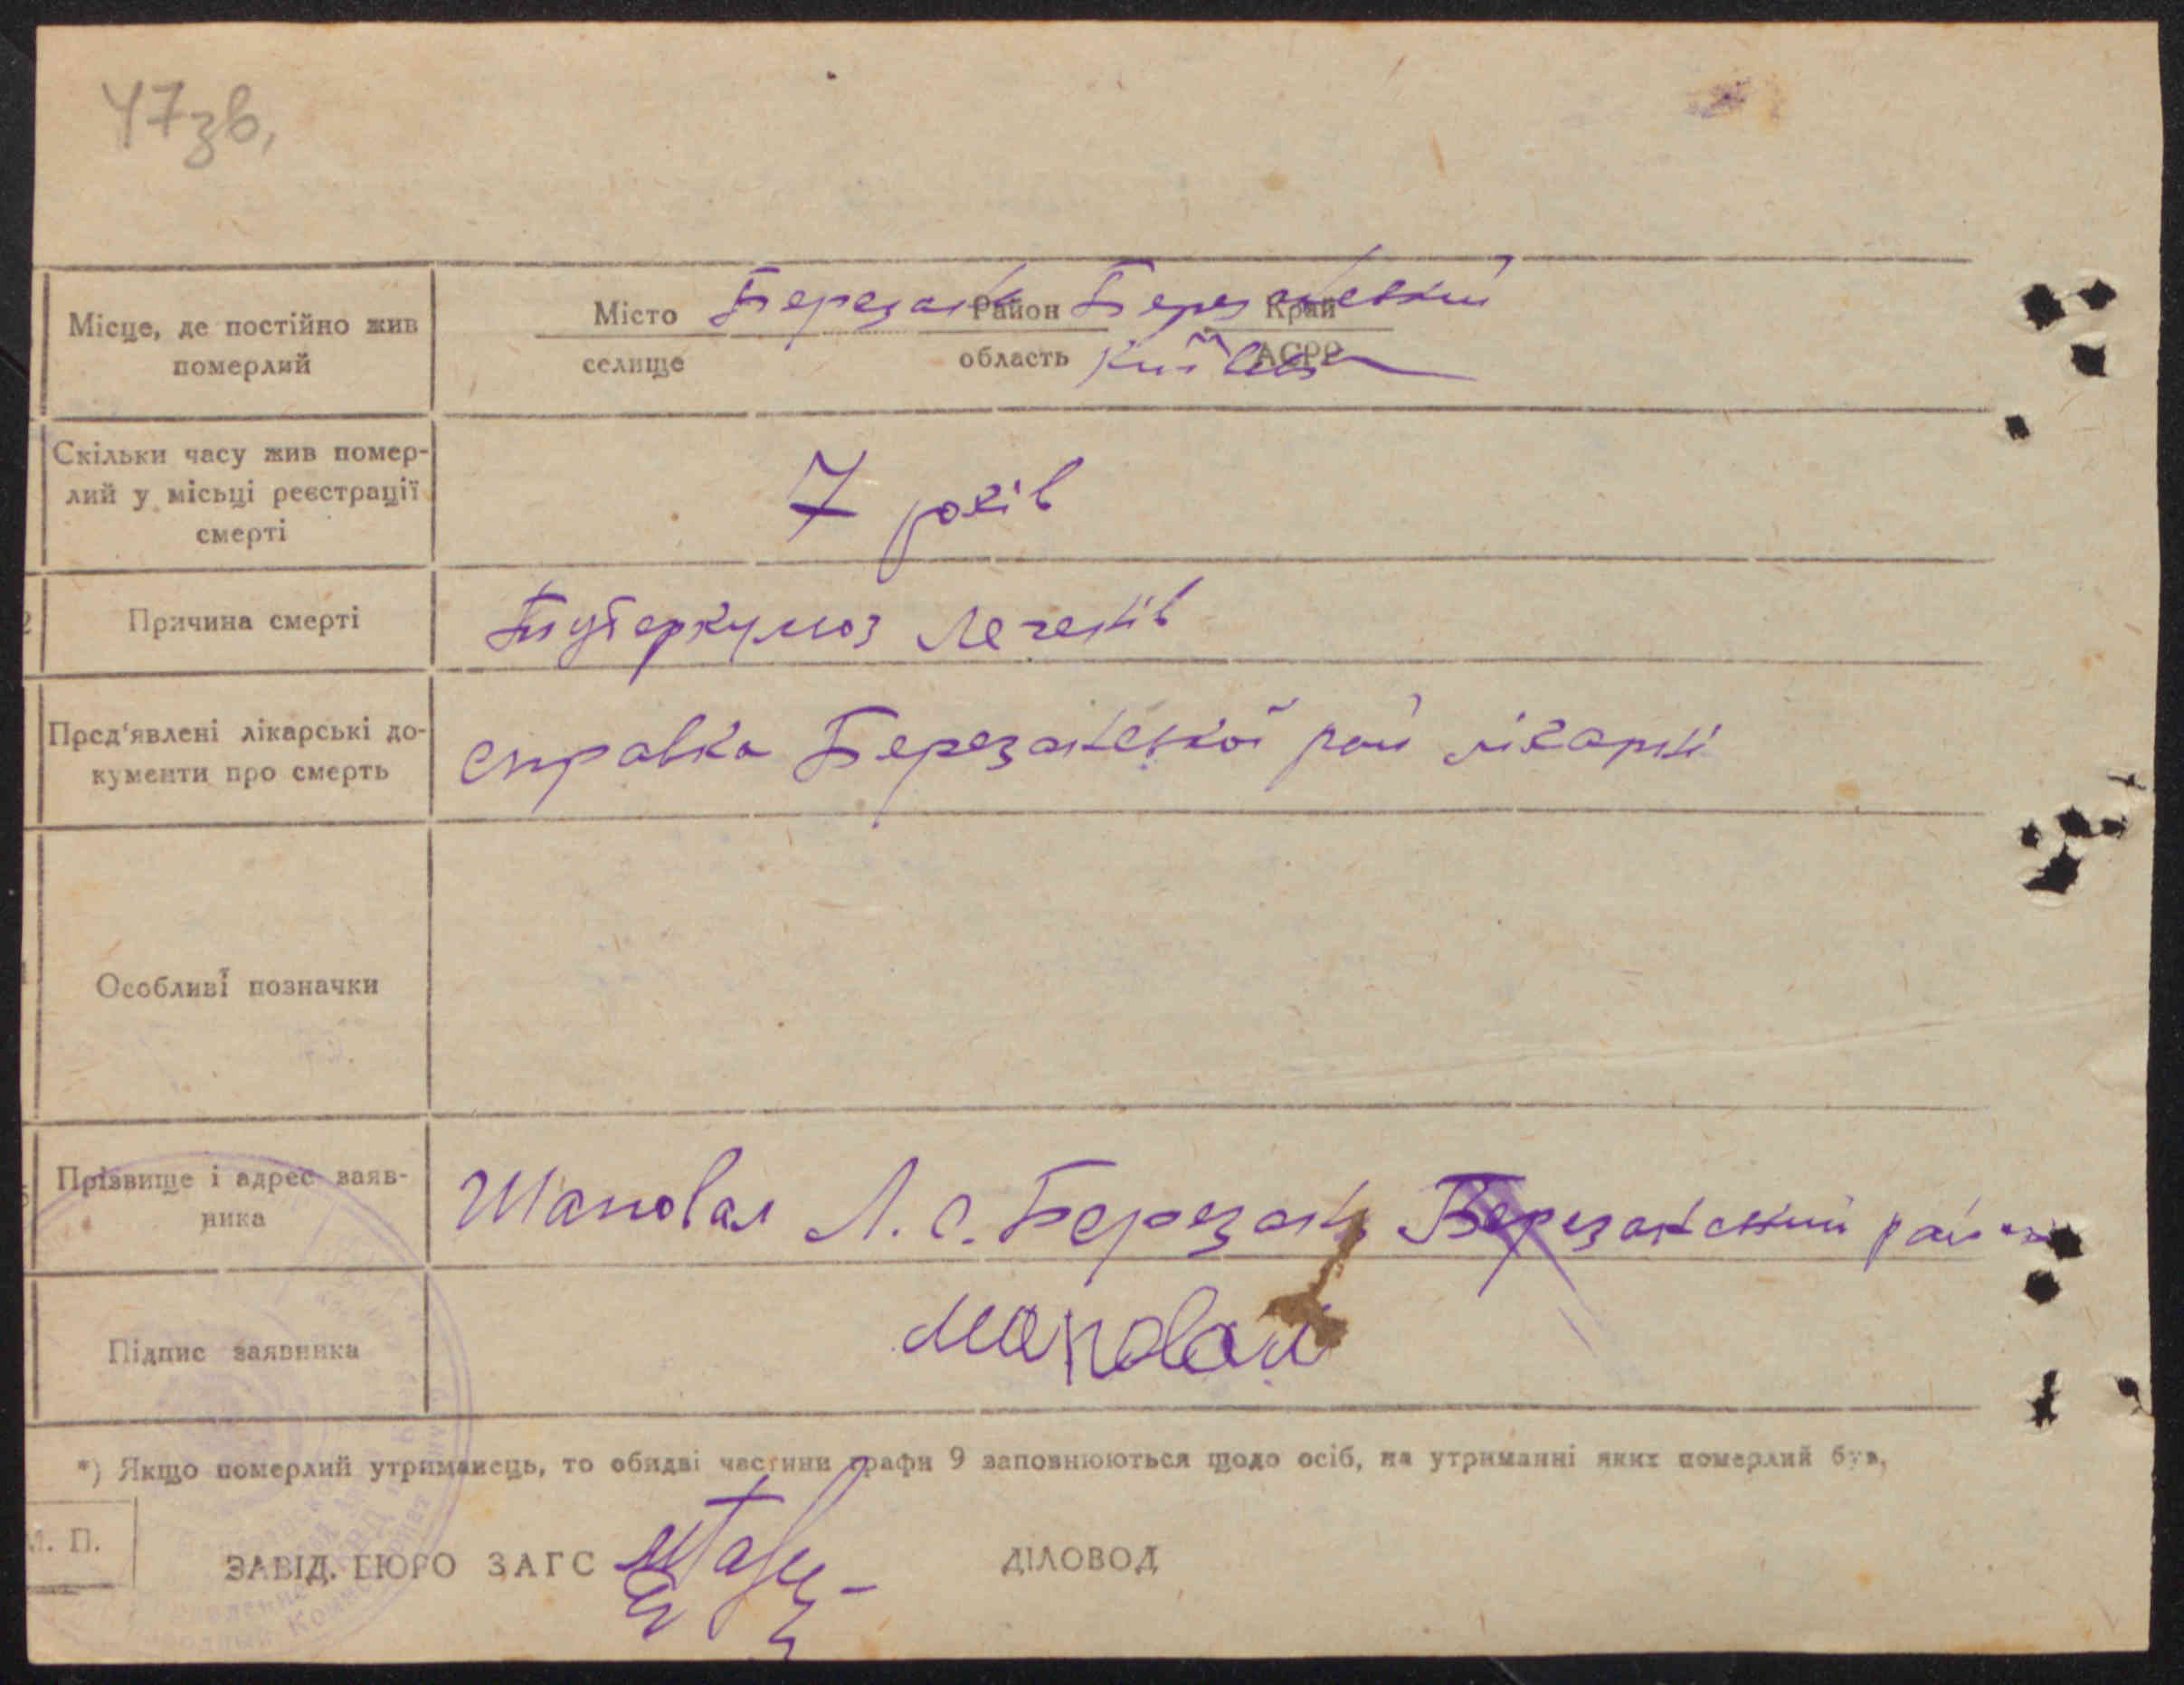 47зв,
Місце, де постійно жив
померлий
Місто Березань Район Березанський Край
селище область Київська АСРР
Скільки часу жив помер-
лий у місьці реєстрації
смерті
7 років
Причина смерті
Туберкульоз Легенів
Пред'явлені лікарські до-
кументи про смерть
справка Березанської рай лікарні
Особливі позначки
Прізвище і адрес заяв-
ника
Шаповал Л. С. Березань Березанський район
Підпис заявника
Шаповал
*) Якщо померлий утриманець, то обидві частини графи 9 заповнюються щодо осіб, на утриманні яких померлий був,
М. П.
ЗАВІД. БЮРО ЗАГС
ДІЛОВОД